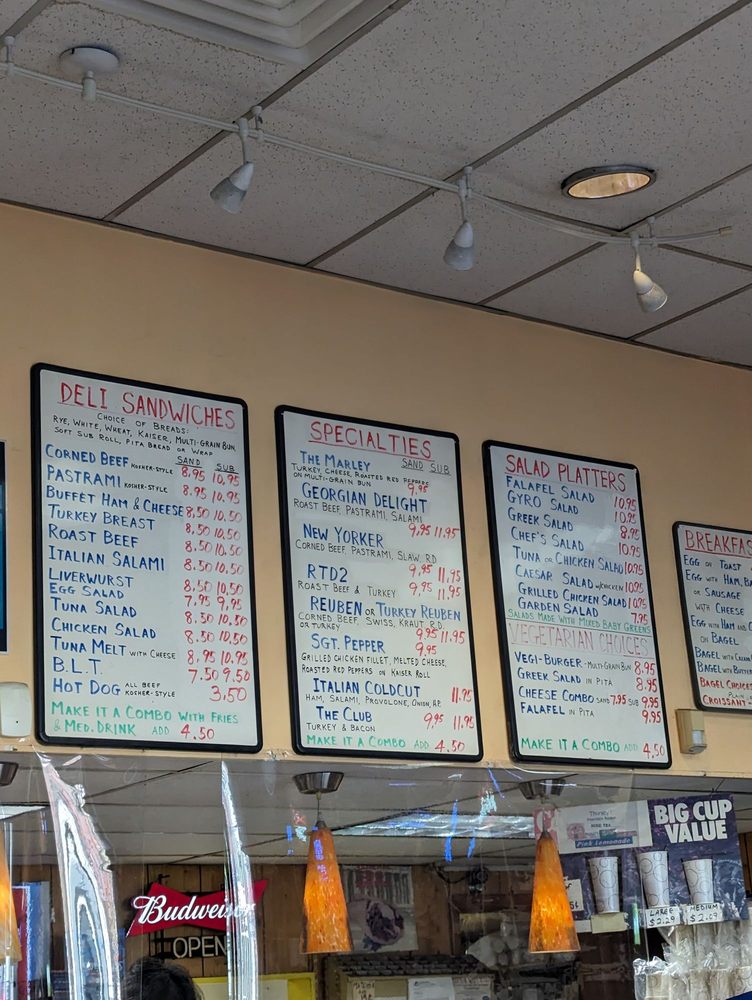 DELI SANDWICHES
CHOICE OF BREADS:
RYE, WHITE, WHEAT, KAISER, MULTI-GRAIN BUN,
SOFT SUB ROLL, PITA BREAD OR WRAP
SAND SUB
CORNED BEEF KOSHER-STYLE 8.95 10.95
PASTRAMI KOSHER-STYLE 8.95 10.95
BUFFET HAM & CHEESE 8.50 10.50
TURKEY BREAST 8.50 10.50
ROAST BEEF 8.50 10.50
ITALIAN SALAMI 8.50 10.50
LIVERWURST 8.50 10.50
EGG SALAD 7.95 9.95
TUNA SALAD 8.50 10.50
CHICKEN SALAD 8.50 10.50
TUNA MELT WITH CHEESE 8.95 10.95
B.L.T. 7.50 9.50
HOT DOG ALL BEEF KOSHER-STYLE 3.50
MAKE IT A COMBO WITH FRIES
& MED. DRINK ADD 4.50
SPECIALTIES
SAND SUB
THE MARLEY 9.95
TURKEY, CHEESE, ROASTED RED PEPPERS
ON MULTI-GRAIN BUN
GEORGIAN DELIGHT 9.95 11.95
ROAST BEEF, PASTRAMI, SALAMI
NEW YORKER 9.95 11.95
CORNED BEEF, PASTRAMI, SLAW, RD
RTD2 9.95 11.95
ROAST BEEF & TURKEY
REUBEN OR TURKEY REUBEN 9.95 11.95
CORNED BEEF, SWISS, KRAUT, RD
OR TURKEY
SGT. PEPPER 9.95
GRILLED CHICKEN FILLET, MELTED CHEESE,
ROASTED RED PEPPERS ON KAISER ROLL
ITALIAN COLDCUT 11.95
HAM, SALAMI, PROVOLONE, ONION, RP
THE CLUB 9.95 11.95
TURKEY & BACON
MAKE IT A COMBO ADD 4.50
SALAD PLATTERS
FALAFEL SALAD 10.95
GYRO SALAD 10.95
GREEK SALAD 8.95
CHEF'S SALAD 10.95
TUNA OR CHICKEN SALAD 10.95
CAESAR SALAD W/CHICKEN 10.95
GRILLED CHICKEN SALAD 10.95
GARDEN SALAD 7.95
SALADS MADE WITH MIXED BABY GREENS
VEGETARIAN CHOICES
VEGI-BURGER - MULTI-GRAIN BUN 8.95
GREEK SALAD IN PITA 8.95
CHEESE COMBO SAND 7.95 SUB 9.95
FALAFEL IN PITA 9.95
MAKE IT A COMBO ADD 4.50
BREAKFAS
EGG ON TOAST
EGG WITH HAM, BA
OR SAUSAGE
WITH CHEESE
EGG WITH HAM AND
ON BAGEL
BAGEL WITH
BAGEL WITH BUTTER
BAGEL CHOICES
CROISSANT
Budweiser
OPEN
Pink Lemonade
BIG CUP
VALUE
LARGE
$2.29
MEDIUM
$2.09